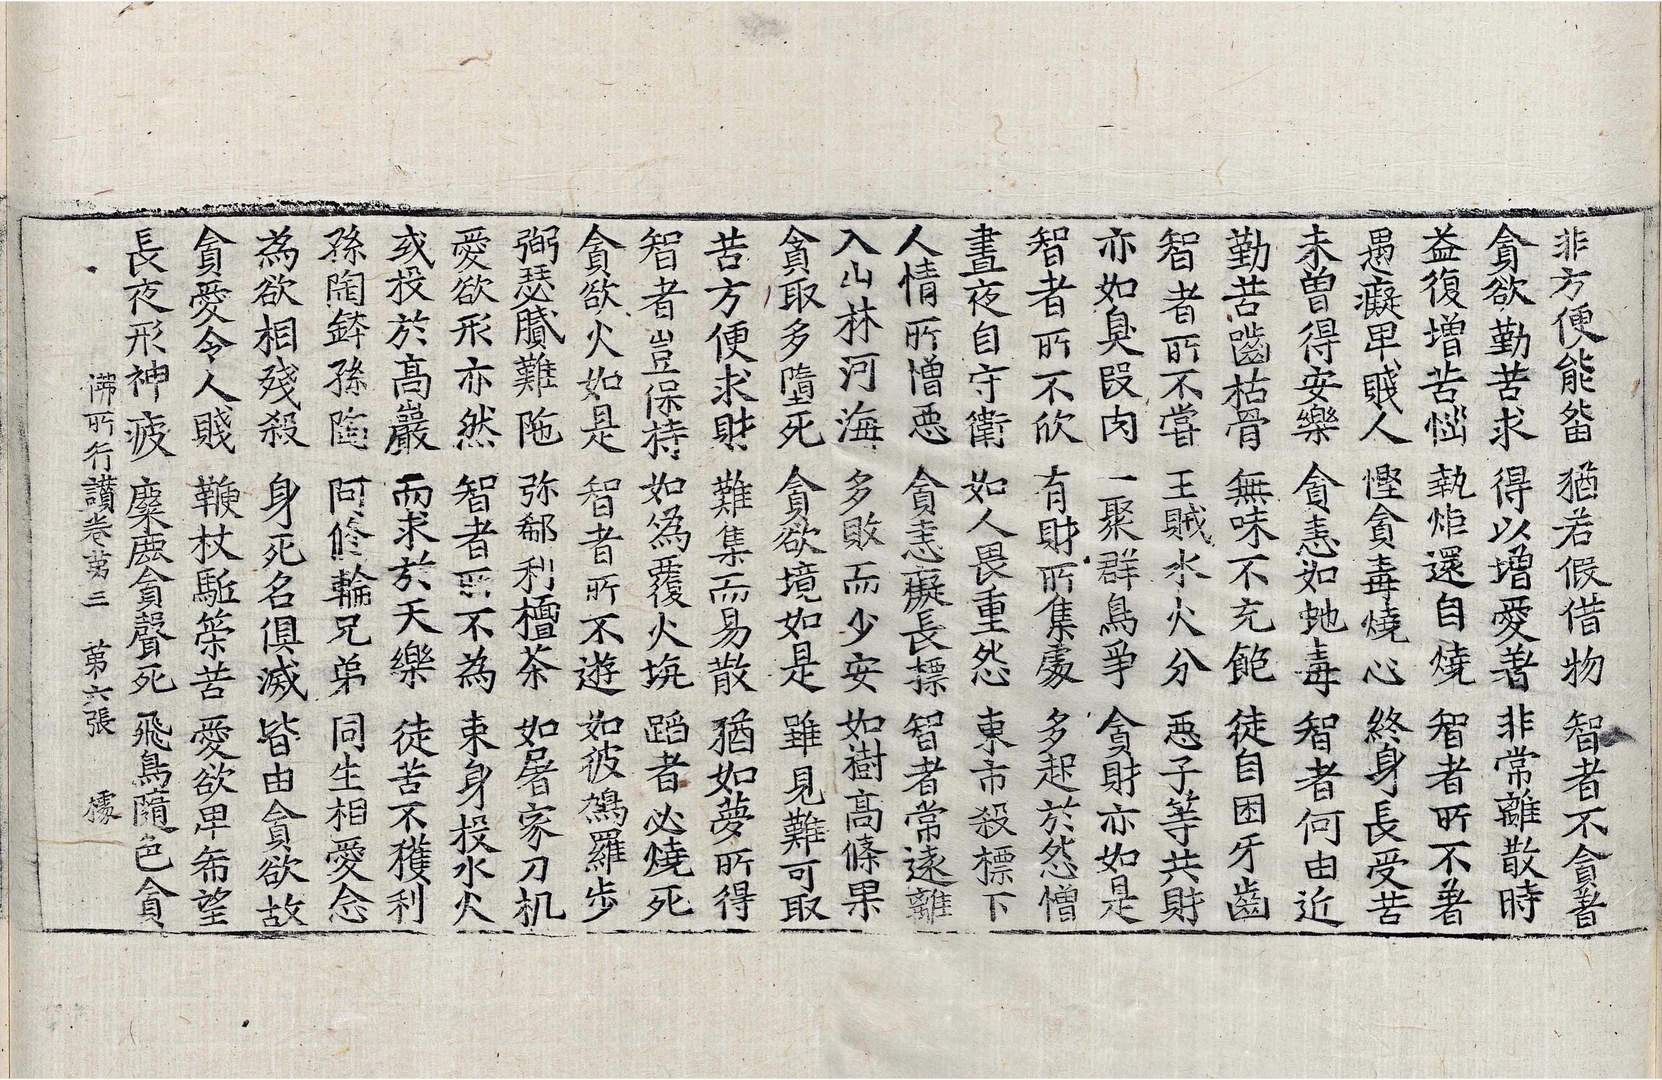 非方便能留 猶若假借物 智者不貪著
貪欲勤苦求 得以增愛著 非常離散時
益復增苦惱 執炬還自燒 智者所不著
愚癡卑賤人 慳貪毒燒心 終身長受苦
未曾得安樂 貪恚如虵毒 智者何由近
勤苦嚙枯骨 無味不充飽 徒自困牙齒
智者所不嘗 王賊水火分 惡子等共財
亦如臭段肉 一聚群鳥爭 貪財亦如是
智者所不欣 有財所集處 多起於怨憎
晝夜自守衛 如人畏重怨 東市殺標下
人情所憎惡 貪恚癡長標 智者常遠離
入山林河海 多敗而少安 如樹高條果
貪取多墮死 貪欲境如是 雖見難可取
苦方便求財 難集而易散 猶如夢所得
智者豈保持 如偽覆火坑 蹈者必燒死
貪欲火如是 智者所不遊 如彼鳩羅步
弼瑟膩難陁 弥郗利檀茶 如屠家刀机
愛欲形亦然 智者所不為 束身投水火
或投於高巖 而求於天樂 徒苦不獲利
孫陶鉢孫陶 阿修輪兄弟 同生相愛念
為欲相殘殺 身死名俱滅 皆由貪欲故
貪愛令人賤 鞭杖駈策苦 愛欲卑希望
長夜形神疲 麋鹿貪聲死 飛鳥隨色貪
佛所行讃卷第三 第六張